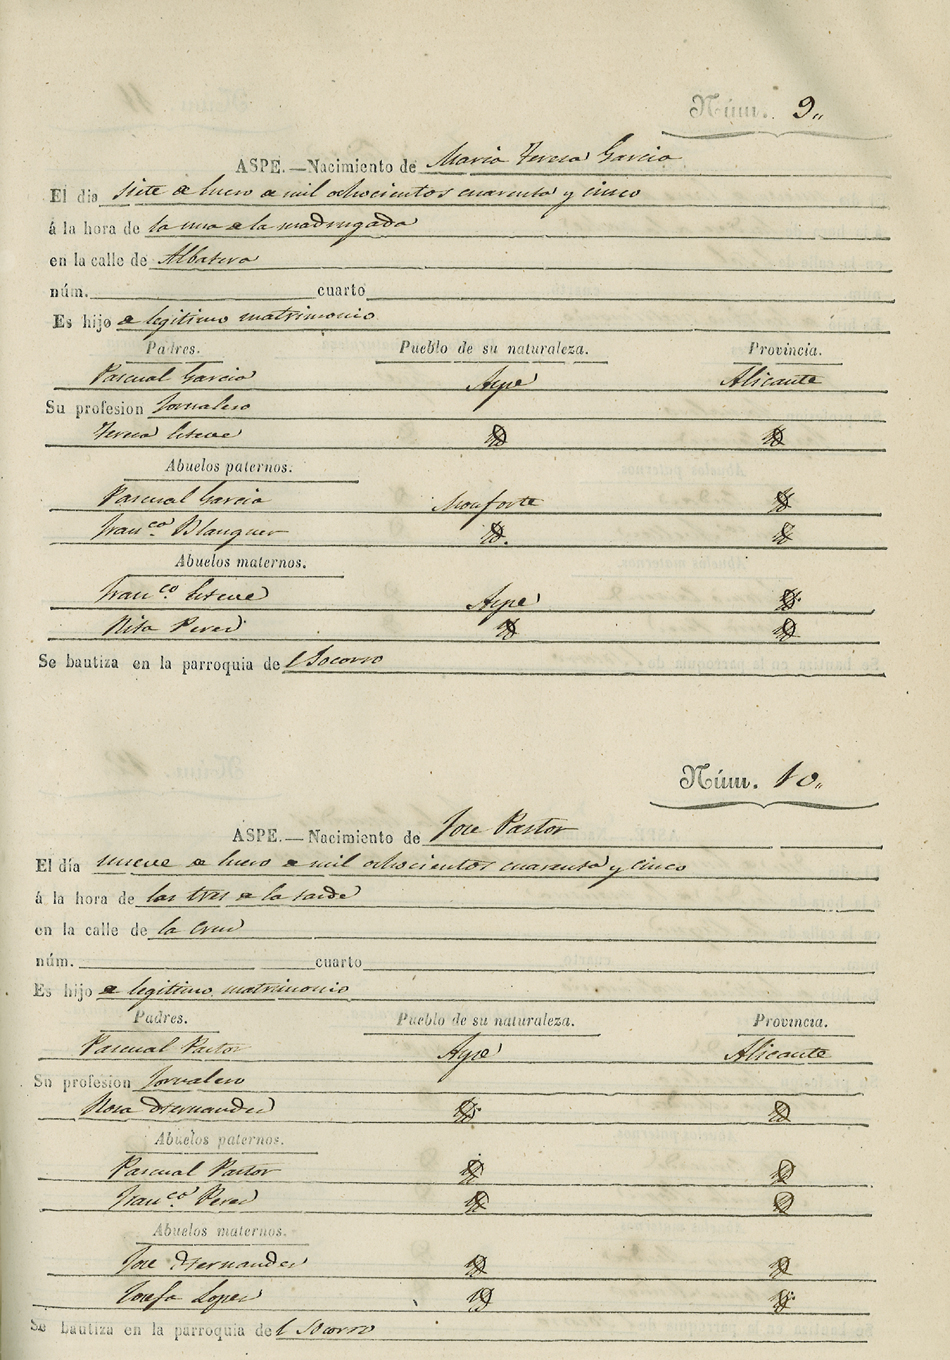 Núm. 9.,
ASPE.—Nacimiento de Maria Teresa Garcia
El dia siete de Enero de mil ochocientos cuarenta y cinco
á la hora de la una de la madrugada
en la calle de Albatera
núm. cuarto
Es hijo de legitimo matrimonio
Padres. Pueblo de su naturaleza. Provincia.
Pascual Garcia Aspe Alicante
Su profesion Jornalero
Teresa Esteve Yd Yd
Abuelos paternos.
Pascual Garcia Monforte Yd
Franca. Blanquer Yd. Yd
Abuelos maternos.
Franco. Esteve Aspe Yd.
Rita Perez Yd Yd
Se bautiza en la parroquia de l Socorro
Núm. 10.,
ASPE.—Nacimiento de Jose Pastor
El día nueve de Enero de mil ochocientos cuarenta y cinco
á la hora de las tres de la tarde
en la calle de la Cruz
núm. cuarto
Es hijo de legitimo matrimonio
Padres. Pueblo de su naturaleza. Provincia.
Pascual Pastor Aspe Alicante
Su profesion Jornalero
Rosa Hernandez Yd. Yd
Abuelos paternos.
Pascual Pastor Yd Yd
Franca. Perez Yd Yd
Abuelos maternos.
Jose Hernandez Yd Yd
Josefa Lopez Yd Yd.
Se bautiza en la parroquia de l Socorro